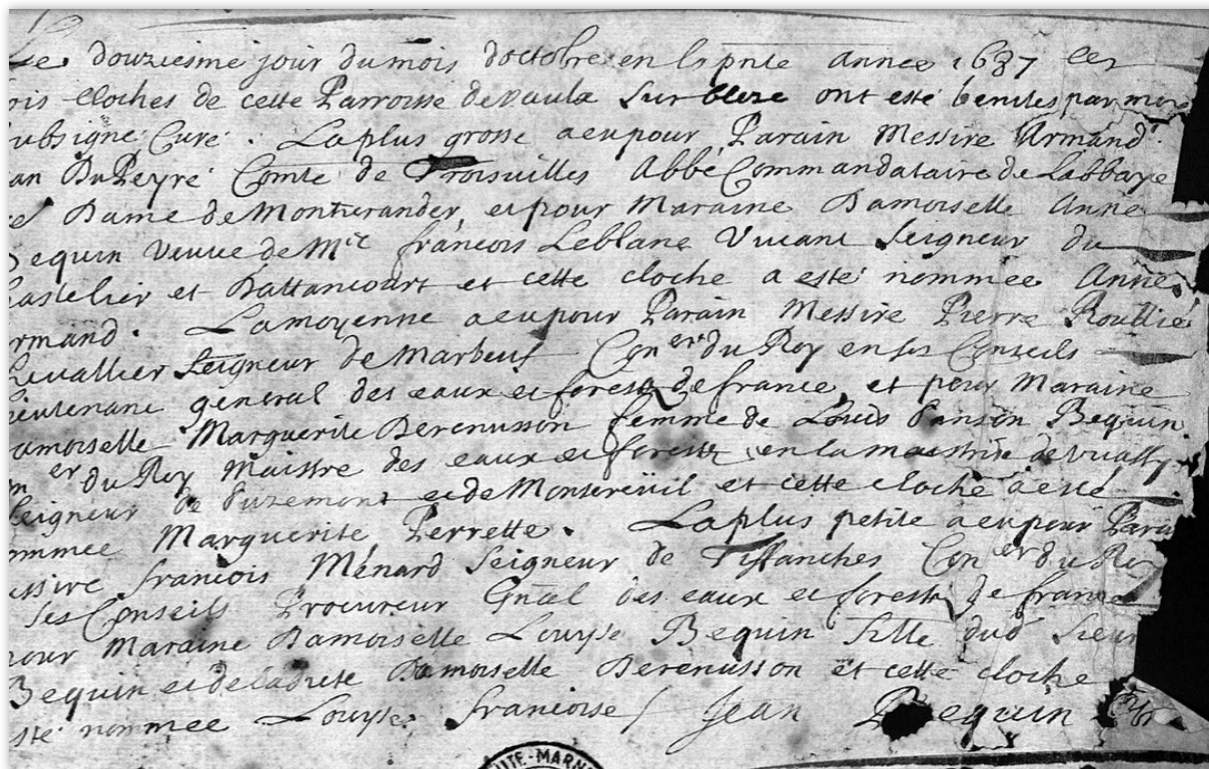 Le douziesme jour du mois doctobre en la pnte annee 1687 les
ois cloches de cette Parroisse de vaulx sur bleze ont esté benites par moy
ubsigné Curé . La plus grosse a eu pour Parain Messire Armand
an Du Peyré Comte de Troisuilles Abbé Commandataire de Labbaye
e Dame de Montierander, et pour Maraine Damoiselle Anne
Bequin Veuue de Mre francois Leblanc Viuant Seigneur du
astelier et Dattancourt et cette cloche a esté nommee Anne
rmand . La moyenne a eu pour Parain Messire Pierre Roullié
heuallier Seigneur de Marbeuf Coner du Roy en ses Conseils
ieutenant general des eaux et forests de france, et pour Maraine
amoiselle Marguerite Derenusson femme de Louis Bequin
er du Roy Maistre des eaux et forests en la maistrise de Vuassy
Seigneur de Suzemont et de Montreüil et cette cloche a esté
ommee Marguerite Perrette . La plus petite a eu pour Para
essire francois Ménard Seigneur de Coner du Roy
ses Conseils Procureur Gnãl des eaux et forests de france
pour Maraine Damoiselle Louyse Bequin fille dud Sieur
Bequin et de ladite Damoiselle Derenusson et cette cloche
sté nommee Louyse francoise / Jean Bequin
UTE-MARN